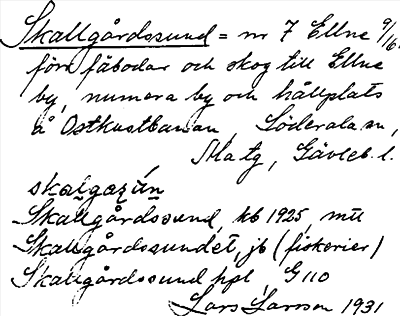 Skallgårdssund = nr 7 Ellne 9/16.
förr fäbodar och skog till Ellne
by, numera by och hållplats
å Ostkustbanan, Söderala sn,
Ma tg, Gävleb. l.
skalgaʂún
Skallgårdssund, kb 1925, mtl
Skallgårdssundet, jb (fiskerier)
Skallgårdssund hpl, G 110
Lars Larsson 1931